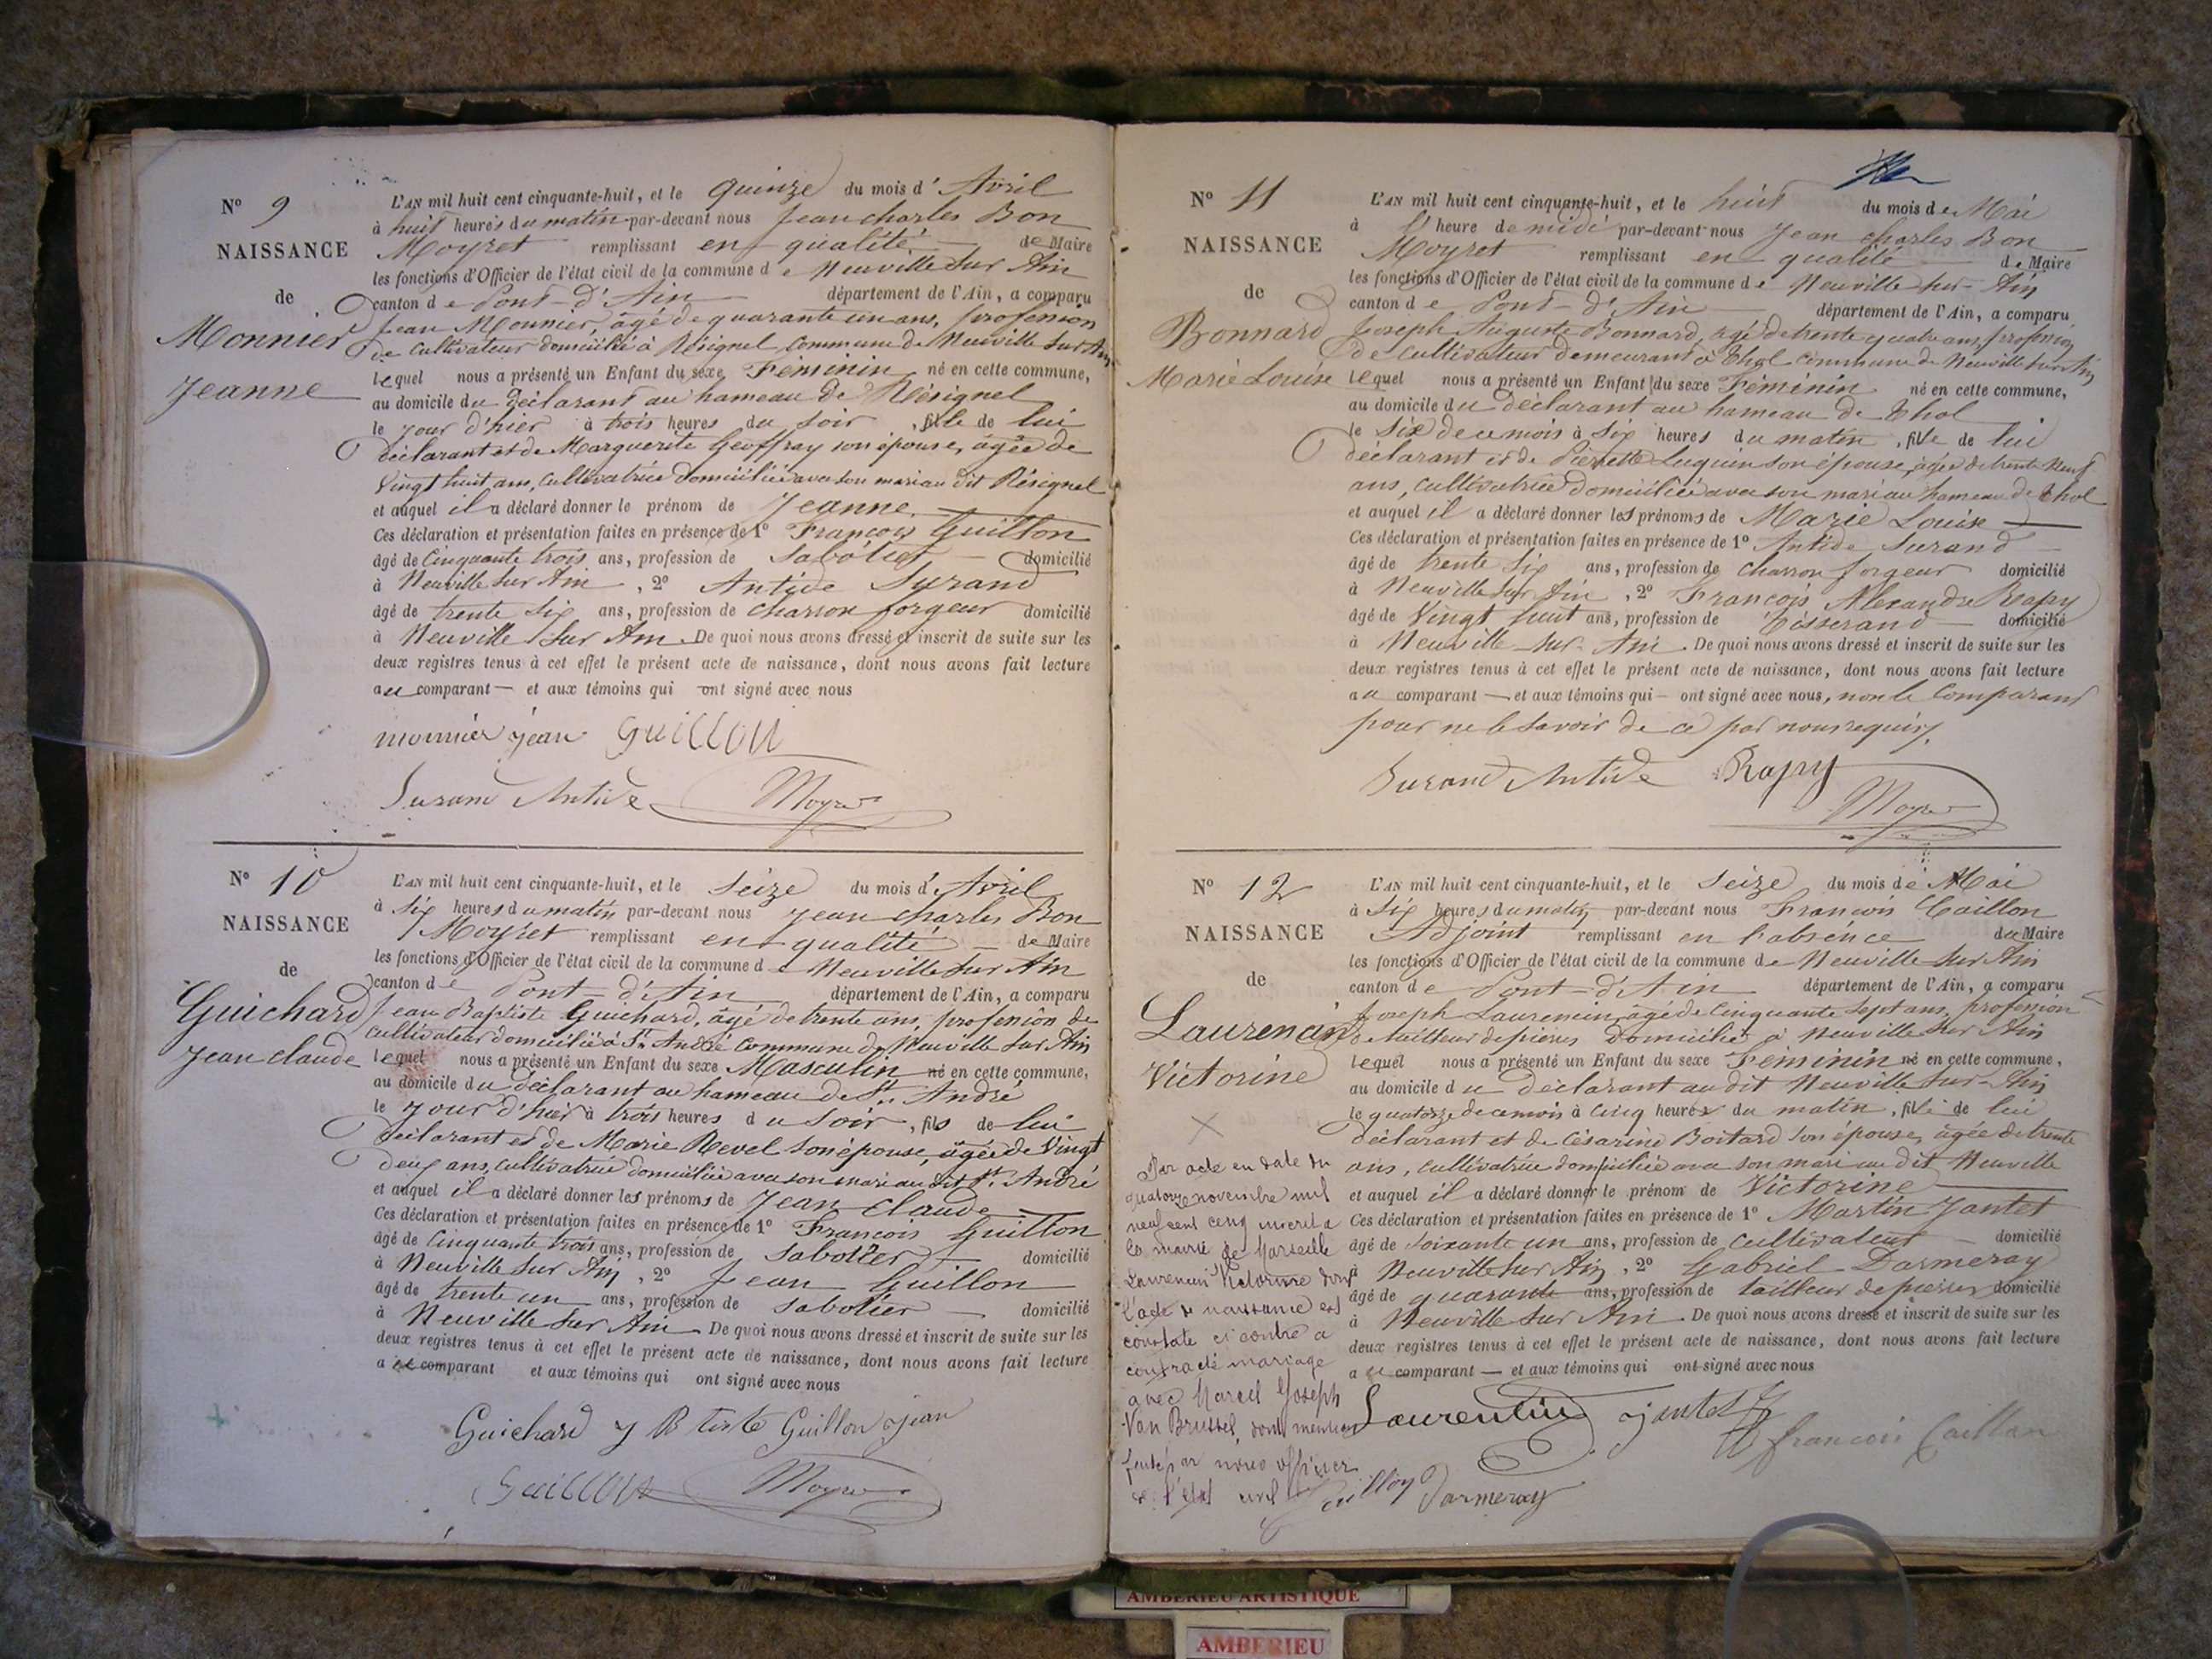 N° 9
NAISSANCE
de
Monnier
Jeanne
L'AN mil huit cent cinquante-huit, et le quinze du mois d'Avril
à huit heures du matin par-devant nous Jean charles Bon
Moyret remplissant en qualité de Maire
les fonctions d'Officier de l'état civil de la commune de Neuville sur Ain
canton de Pont-d'Ain département de l'Ain, a comparu
Jean Monnier, âgé de quarante un ans, profession
de Cultivateur domicilié à Résignel Commune de Neuville sur Ain
lequel nous a présenté un Enfant du sexe Féminin né en cette commune,
au domicile du déclarant au hameau de Résignel
le jour d'hier à trois heures du soir, fille de lui
déclarant et de Marguerite Geoffray son épouse, âgée de
Vingt huit ans, Cultivatrice domiciliée avec son mari au dit Résignel
et auquel il a déclaré donner le prénom de Jeanne
Ces déclaration et présentation faites en présence de 1° François Guillon
âgé de Cinquante trois ans, profession de Sabotier domicilié
à Neuville sur Ain, 2° Antide Surand
âgé de trente six ans, profession de charron forgeur domicilié
à Neuville sur Ain. De quoi nous avons dressé et inscrit de suite sur les
deux registres tenus à cet effet le présent acte de naissance, dont nous avons fait lecture
au comparant — et aux témoins qui ont signé avec nous
monnier jean Guillon
Surand Antide Moyret
N° 10
NAISSANCE
de
Guichard
Jean claude
L'AN mil huit cent cinquante-huit, et le Seize du mois d'Avril
à six heures du matin par-devant nous Jean charles Bon
Moyret remplissant en qualité — de Maire
les fonctions d'Officier de l'état civil de la commune de Neuville sur Ain
canton de Pont-d'Ain département de l'Ain, a comparu
Jean Baptiste Guichard, âgé de trente ans, profession de
Cultivateur domicilié à St. André Commune de Neuville sur Ain
lequel nous a présenté un Enfant du sexe Masculin né en cette commune,
au domicile du déclarant au hameau de St. André
le jour d'hier à trois heures du soir, fils de lui
déclarant et de Marie Revel son épouse, âgée de Vingt
deux ans, Cultivatrice domiciliée avec son mari au dit St. André
et auquel il a déclaré donner les prénoms de Jean Claude
Ces déclaration et présentation faites en présence de 1° François Guillon
âgé de Cinquante trois ans, profession de Sabotier domicilié
à Neuville sur Ain, 2° Jean Guillon
âgé de trente un ans, profession de Sabotier domicilié
à Neuville sur Ain De quoi nous avons dressé et inscrit de suite sur les
deux registres tenus à cet effet le présent acte de naissance, dont nous avons fait lecture
au comparant et aux témoins qui ont signé avec nous
Guichard J B tiste Guillon jean
Guillon Moyret
N° 11
NAISSANCE
de
Bonnard
Marie Louise
L'AN mil huit cent cinquante-huit, et le huit du mois de Mai
à l'heure de midi par-devant nous Jean charles Bon
Moyret remplissant en qualité de Maire
les fonctions d'Officier de l'état civil de la commune de Neuville sur-Ain
canton de Pont-d'Ain département de l'Ain, a comparu
Joseph Auguste Bonnard, âgé de trente quatre ans, profession
de Cultivateur demeurant à Thol Commune de Neuville sur Ain
lequel nous a présenté un Enfant du sexe Féminin né en cette commune,
au domicile du déclarant au hameau de Thol
le six de ce mois à six heures du matin, fille de lui
déclarant et de Pierrette Luquin son épouse, âgée de trente neuf
ans, cultivatrice domiciliée avec son mari au hameau de Thol
et auquel il a déclaré donner les prénoms de Marie Louise
Ces déclaration et présentation faites en présence de 1° Antide Surand
âgé de trente six ans, profession de charron forgeur domicilié
à Neuville sur Ain, 2° François Alexandre Rapy
âgé de Vingt huit ans, profession de Tisserand domicilié
à Neuville-sur-Ain. De quoi nous avons dressé et inscrit de suite sur les
deux registres tenus à cet effet le présent acte de naissance, dont nous avons fait lecture
au comparant — et aux témoins qui — ont signé avec nous, non le Comparant
pour ne le savoir de ce par nous requis.
Surand Antide Rapy
Moyret
N° 12
NAISSANCE
de
Laurencin
Victorine
L'AN mil huit cent cinquante-huit, et le Seize du mois de Mai
à Six heures du matin par-devant nous François Caillon
Adjoint remplissant en l'absence du Maire
les fonctions d'Officier de l'état civil de la commune de Neuville sur Ain
canton de Pont-d'Ain département de l'Ain, a comparu
Joseph Laurencin, âgé de Cinquante sept ans, profession
de tailleur de pierres domicilié à Neuville sur Ain
lequel nous a présenté un Enfant du sexe Féminin né en cette commune,
au domicile du déclarant au dit Neuville sur-Ain
le quatorze de ce mois à cinq heures du matin, fille de lui
déclarant et de Césarine Boitard son épouse, âgée de trente
ans, cultivatrice domiciliée avec son mari au dit Neuville
et auquel il a déclaré donner le prénom de Victorine
Ces déclaration et présentation faites en présence de 1° Martin Jantet
âgé de Soixante un ans, profession de Cultivateur domicilié
à Neuville sur Ain, 2° Gabriel Darmeray
âgé de quarante ans, profession de tailleur de pierres domicilié
à Neuville sur Ain. De quoi nous avons dressé et inscrit de suite sur les
deux registres tenus à cet effet le présent acte de naissance, dont nous avons fait lecture
au comparant — et aux témoins qui ont signé avec nous
Laurentin jantet
françois Caillon
Darmeray
Par acte en date du
quatorze novembre mil
neuf cent cinq inscrit à
la mairie de Marseille
Laurencin Victorine dont
l'acte de naissance est
constaté ci contre a
contracté mariage
avec Marcel Joseph
Van Brussel, dont mention
faite par nous officier
de l'état civil
AMBERIEU ARTISTIQUE
AMBERIEU